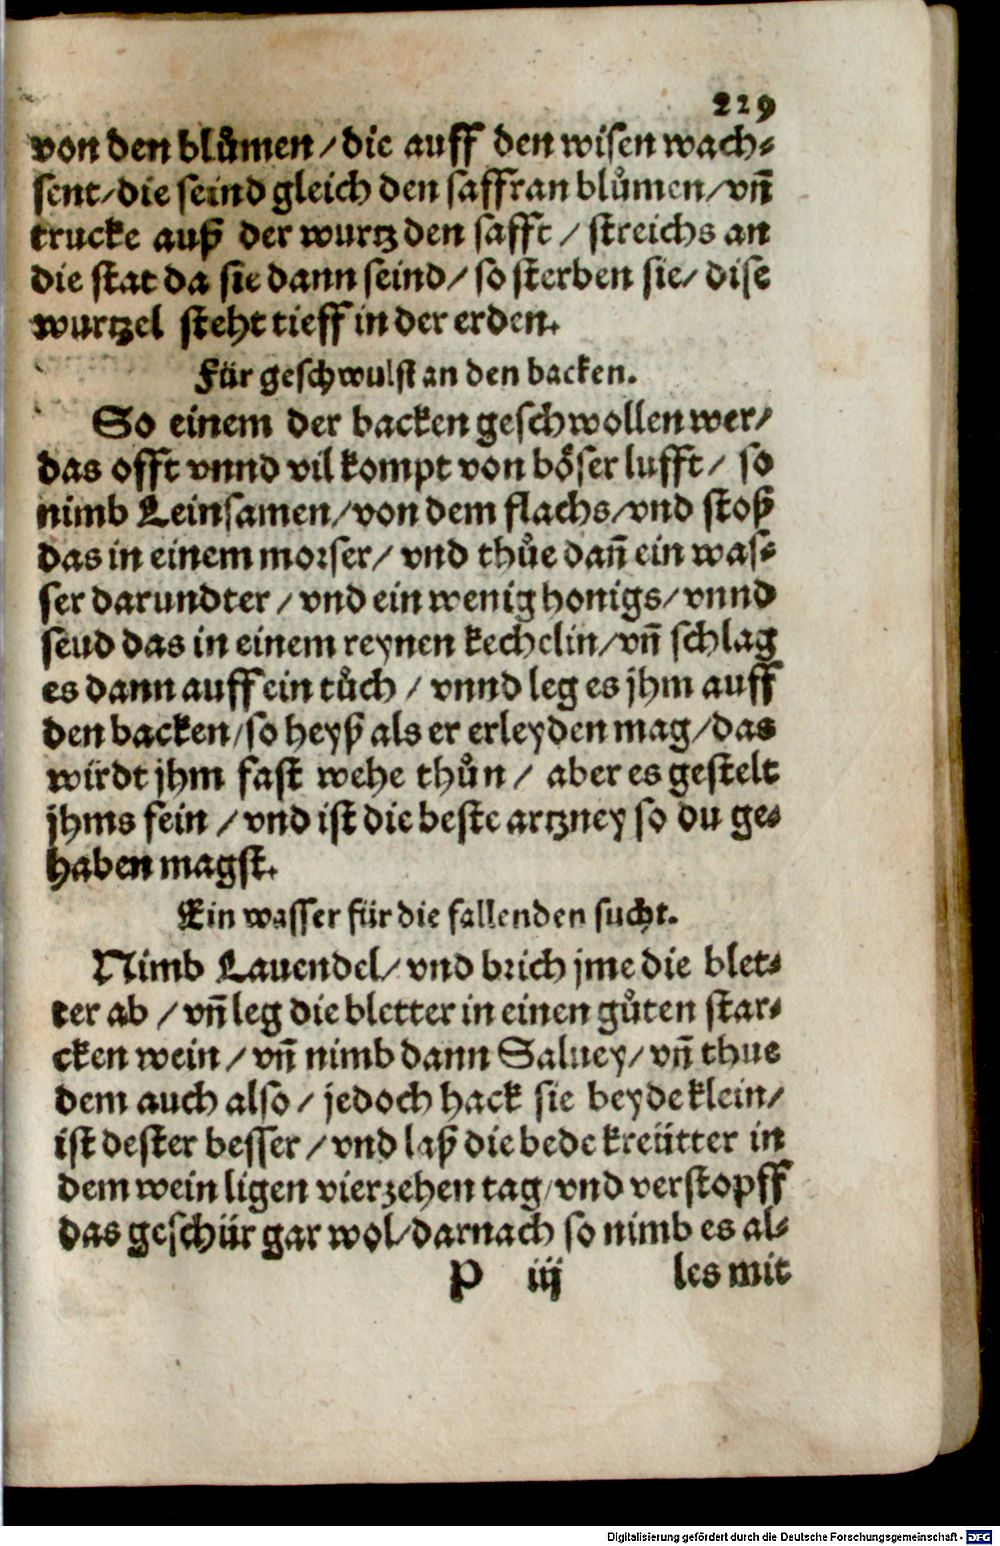 229
von den blůmen / die auff den wisen wach-
sent / die seind gleich den saffran blůmen / vñ
trucke auß der wurtz den safft / streichs an
die stat da sie dann seind / so sterben sie / dise
wurtzel steht tieff in der erden.
Für geschwulst an den backen.
So einem der backen geschwollen wer /
das offt vnnd vil kompt von böser lufft / so
nimb Leinsamen / von dem flachs / vnd stoß
das in einem morser / vnd thůe dañ ein was-
ser darundter / vnd ein wenig honigs / vnnd
seud das in einem reynen kechelin / vñ schlag
es dann auff ein tůch / vnnd leg es jhm auff
den backen / so heyß als er erleyden mag / das
wirdt jhm fast wehe thůn / aber es gestelt
jhms fein / vnd ist die beste artzney so du ge-
haben magst.
Ein wasser für die fallenden sucht.
Nimb Lauendel / vnd brich jme die blet-
ter ab / vñ leg die bletter in einen gůten star-
cken wein / vñ nimb dann Saluey / vñ thue
dem auch also / jedoch hack sie beyde klein /
ist dester besser / vnd laß die bede kreütter in
dem wein ligen vierzehen tag / vnd verstopff
das geschür gar wol / darnach so nimb es al-
P iij les mit
Digitalisierung gefördert durch die Deutsche Forschungsgemeinschaft - DFG